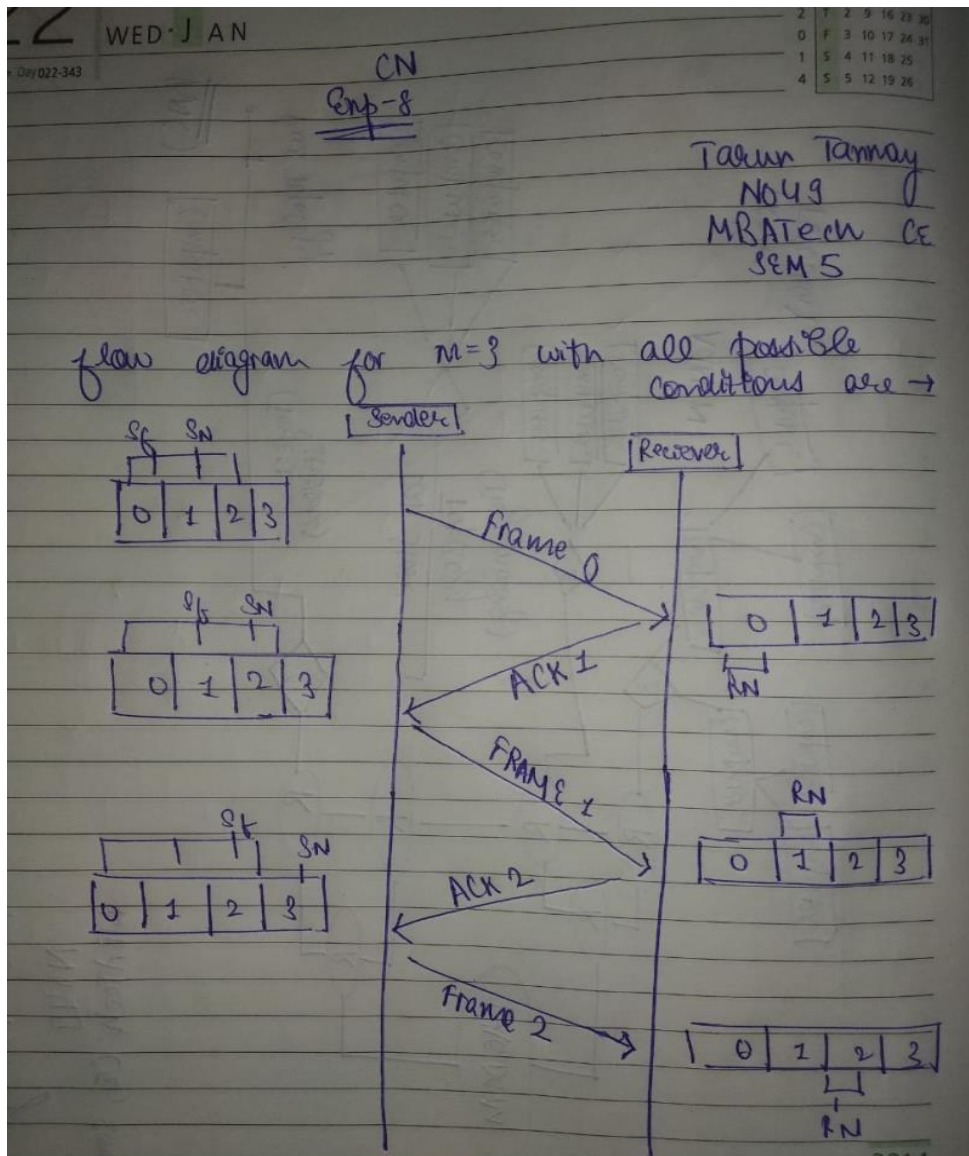 22 WED·JAN
Day 022-343
2 T 2 9 16 23 30
0 F 3 10 17 24 31
1 S 4 11 18 25
4 S 5 12 19 26
CN
Exp-8
Tarun Tanmay
NO49
MBATech CE
SEM 5
flow diagram for m=3 with all possible
conditions are →
Sender
Reciever
Sf SN
0 1 2 3
Frame 0
Sf SN
0 1 2 3
0 1 2 3
RN
ACK 1
FRAME 1
RN
0 1 2 3
Sf SN
0 1 2 3
ACK 2
Frame 2
0 1 2 3
RN